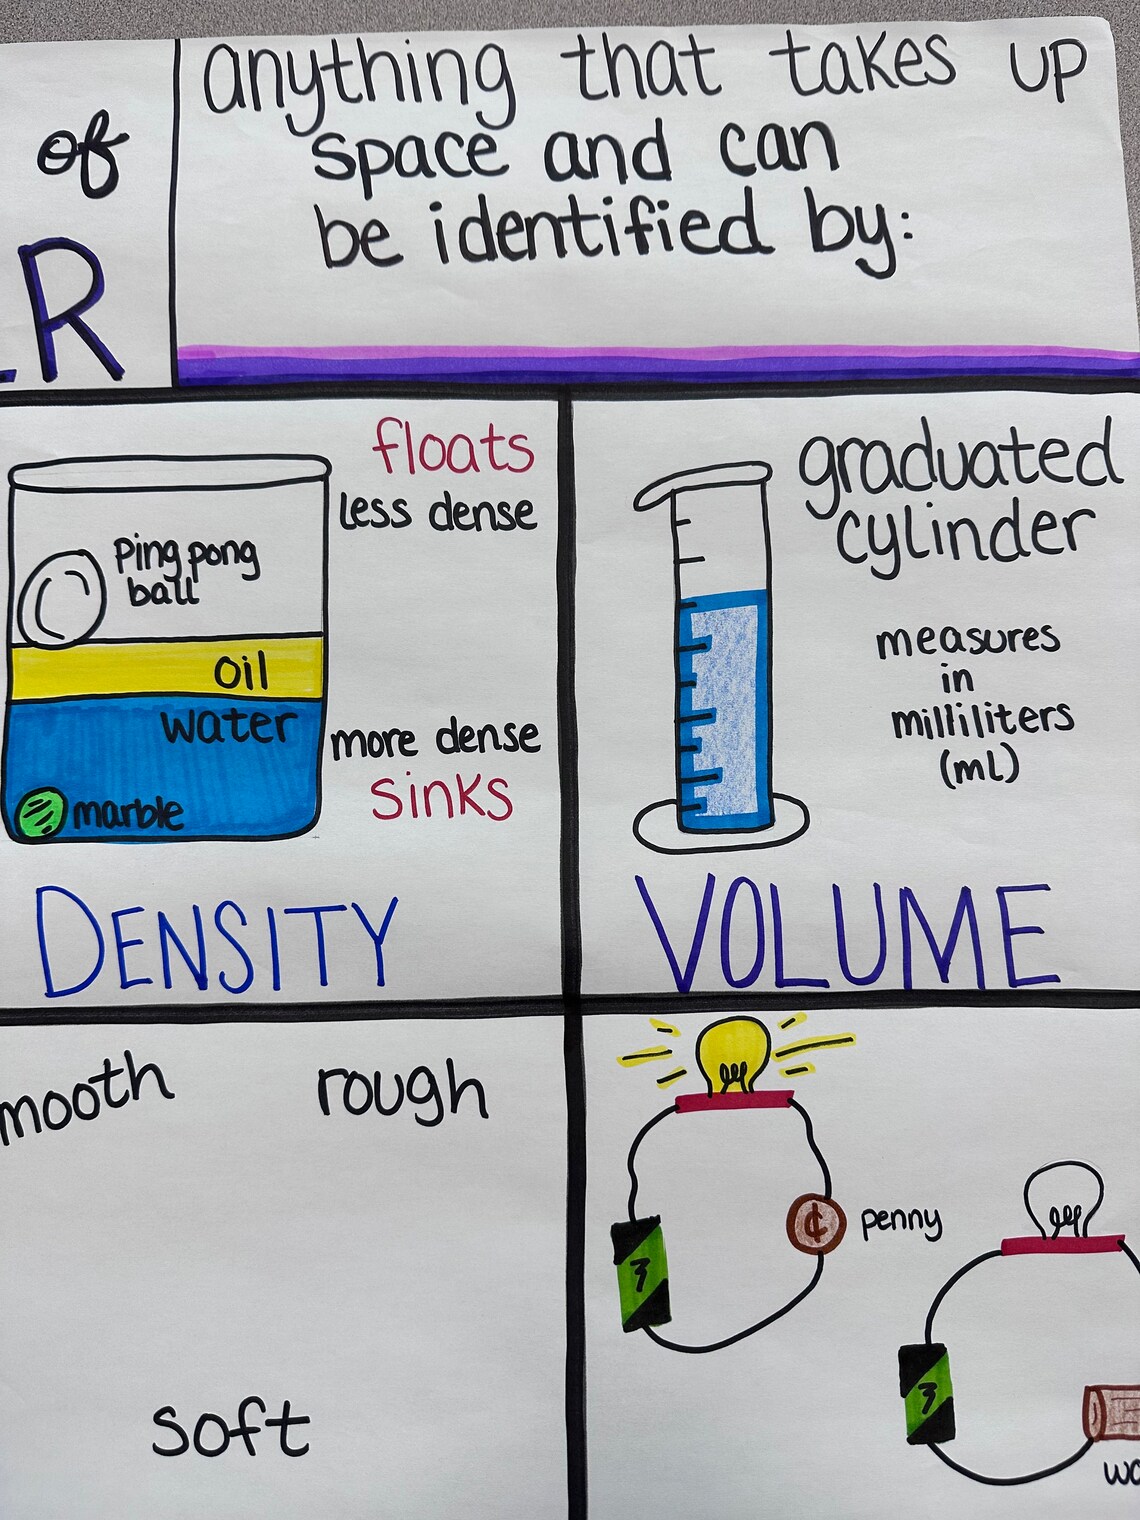 anything that takes up
space and can
be identified by:
of
R
floats
less dense
ping pong
ball
oil
water
more dense
sinks
marble
DENSITY
graduated
cylinder
measures
in
milliliters
(mL)
VOLUME
mooth
rough
soft
¢
penny
wo